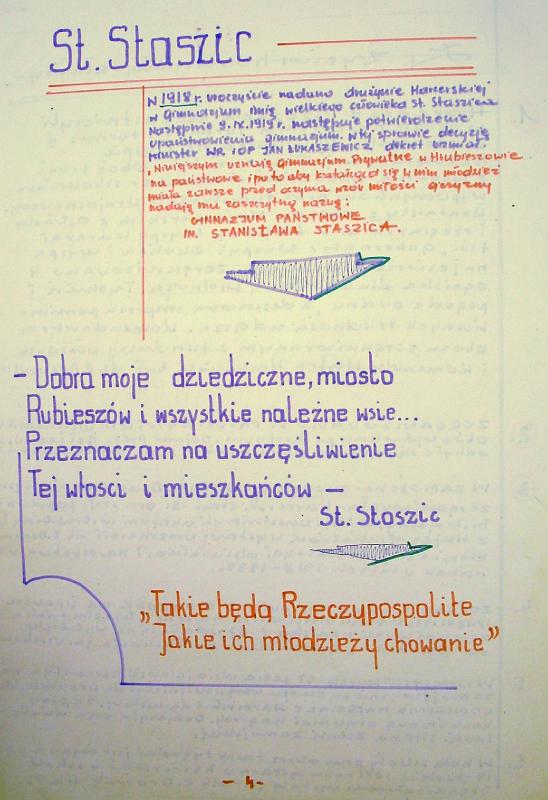 St. Staszic
W 1918 r. uroczyście nadano drużynie Harcerskiej
w gimnazjum imię wielkiego człowieka St. Staszica
Następnie 9.IX.1919 r. następuje potwierdzenie
upaństwowienia gimnazjum. W tej sprawie decyzją
Minister WR i OP JAN ŁUKASZEWICZ dekret brzmiał:
„Niniejszym uznaję gimnazjum Prywatne w Hrubieszowie
na państwowe i po to aby kształcąca się w nim młodzież
miała zawsze przed oczyma wzór miłości ojczyzny
nadają mu zaszczytną nazwę:
GIMNAZJUM PAŃSTWOWE
IM. STANISŁAWA STASZICA.
– Dobra moje dziedziczne, miasto
Rubieszów i wszystkie należne wsie...
Przeznaczam na uszczęśliwienie
Tej włości i mieszkańców –
St. Staszic
„Takie będą Rzeczypospolite
Jakie ich młodzieży chowanie”
- 4 -